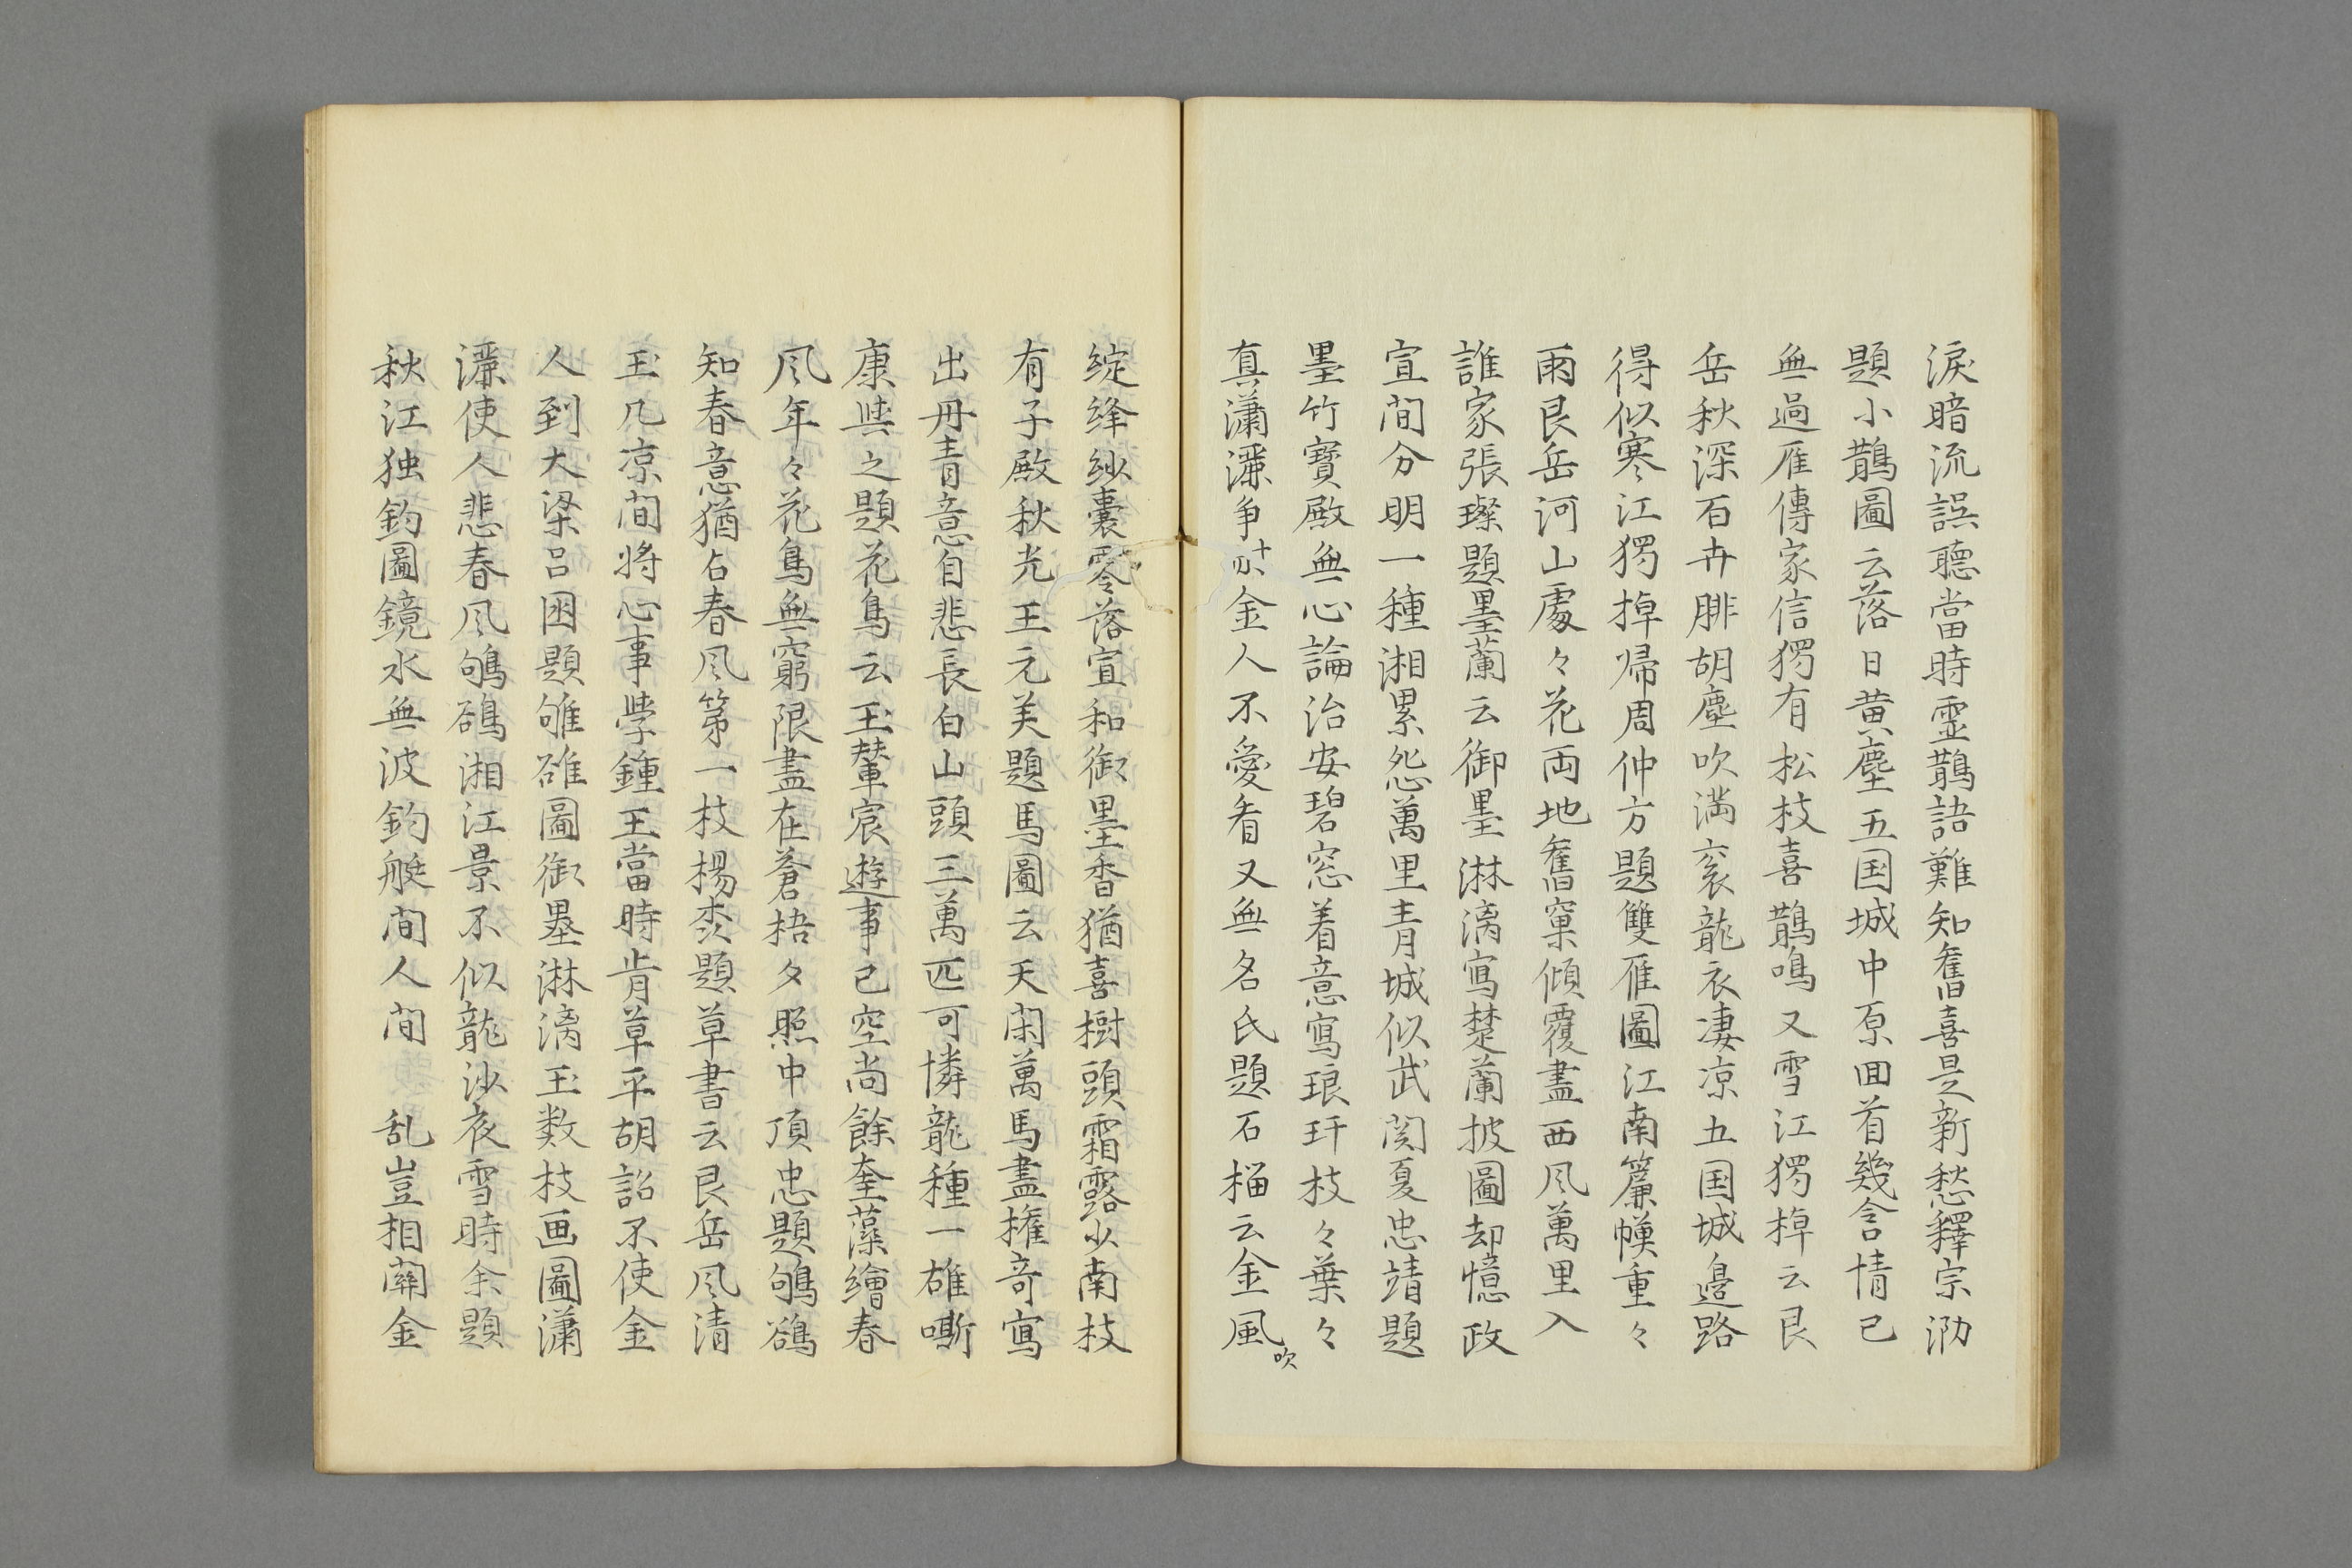 淚暗流誤聽當時霊鵲語難知舊喜是新愁釋宗泐
題小鵲圖云落日黄塵五国城中原囬首幾含情已
無過雁傳家信獨有松枝喜鵲鳴又雪江獨棹云艮
岳秋深百卉腓胡塵吹満衮龍衣凄凉五国城邉路
得似寒江獨棹帰周仲方題雙雁圖江南簾幙重々
雨艮岳河山處々花両地舊窠傾覆盡西风萬里入
誰家張璨題墨蘭云御墨淋漓寫楚蘭披圖却憶政
宣间分明一種湘累怨萬里青城似武関夏忠靖題
墨竹寶殿無心論治安碧窓着意寫琅玕枝々葉々
真瀟灑争 金人不愛看又無名氏題石榴云金風吹
綻絳紗囊零落宣和御墨香猶喜樹頭霜露少南枝
有子殿秋光王元美題馬圖云天闲萬馬盡權竒寫
出丹青意自悲長白山頭三萬匹可憐龍種一雄嘶
康與之題花鳥云玉輦宸遊事已空尚餘奎藻繪春
风年々花鳥無窮限盡在蒼梧夕照中頂忠題鴝鵒
知春意猶占春风第一枝楊 題草書云艮岳风清
玉几凉间将心事學鍾王當時肯草平胡詔不使金
人到大梁吕困題 圖御墨淋漓玉数枝画圖瀟
灑使人悲春风鴝鵒湘江景不似龍沙夜雪時余題
秋江独釣圖鏡水無波釣艇间人间 乱豈相関金